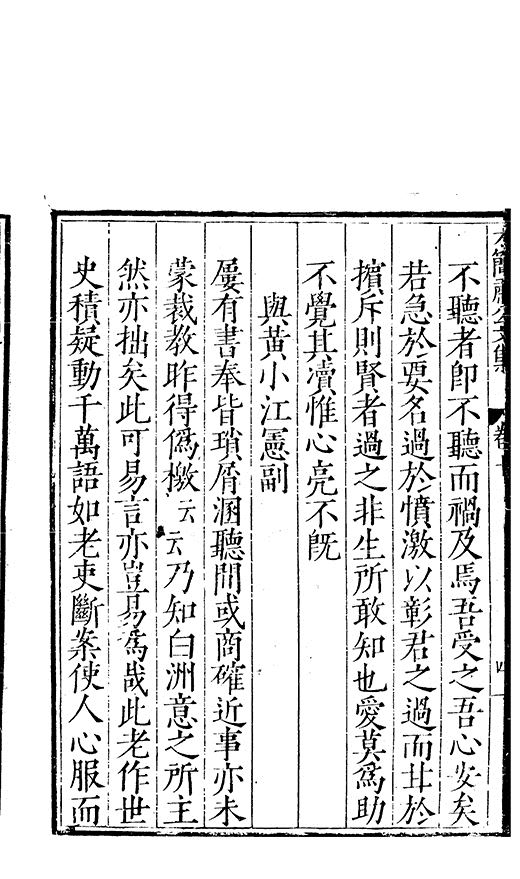 不聽者卽不聽而禍及焉吾受之吾心安矣
若急於要名過於憤激以彰君之過而甘於
擯斥則賢者過之非生所敢知也愛莫爲助
不覺其凟惟心亮不旣
與黃小江憲副
屢有書奉皆瑣屑涵聽間或商確近事亦未
蒙裁教昨得爲檄云云乃知白洲意之所主
然亦拙矣此可易言亦豈易爲哉此老作世
史積疑動千萬語如老吏斷案使人心服而